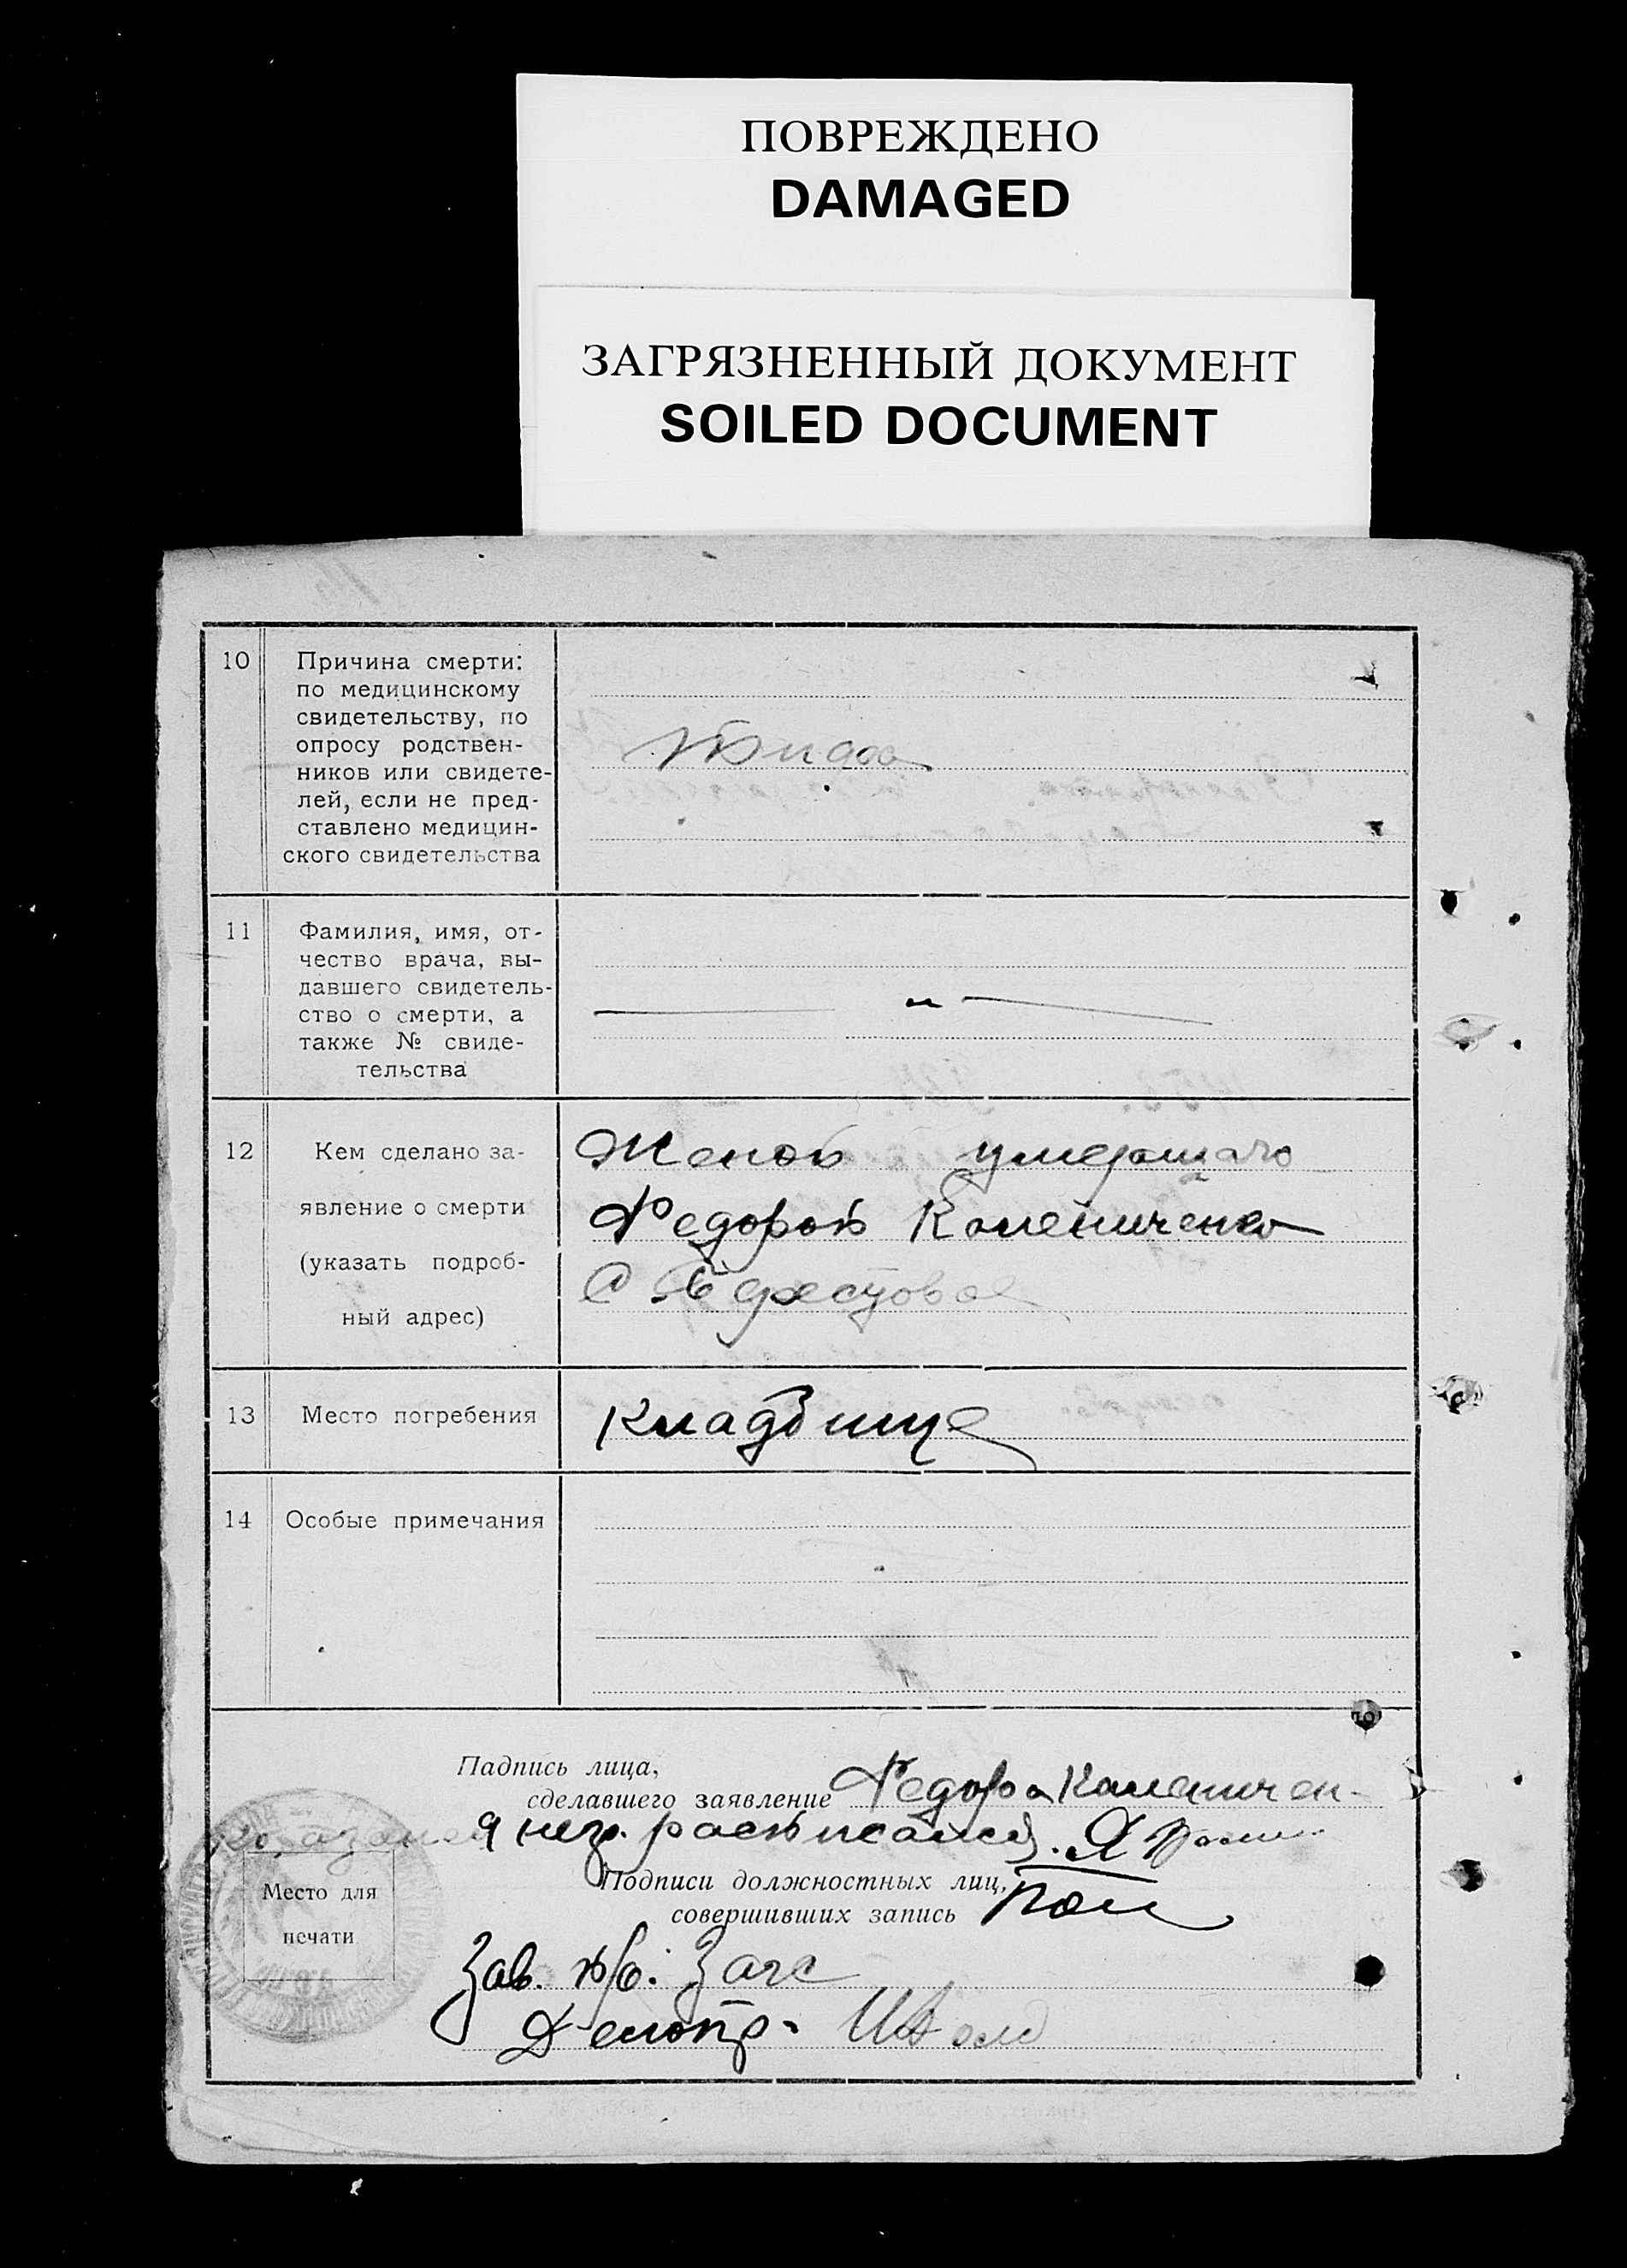 ПОВРЕЖДЕНО
DAMAGED
ЗАГРЯЗНЕННЫЙ ДОКУМЕНТ
SOILED DOCUMENT
10
Причина смерти:
по медицинскому
свидетельству, по
опросу родствен-
ников или свидете-
лей, если не пред-
ставлено медицин-
ского свидетельства
11
Фамилия, имя, от-
чество врача, вы-
давшего свидетель-
ство о смерти, а
также № свиде-
тельства
12
Кем сделано за-
явление о смерти
(указать подроб-
ный адрес)
Женой умершаго
Федорой Калениченко
С
13
Место погребения
Кладбище
14
Особые примечания
Падпись лица,
сделавшего заявление Федора Каленичен-
ко, а за ней негр. расписался.
Подписи должностных лиц,
совершивших запись
Место для
печати
Зав. Загс
Делопр.